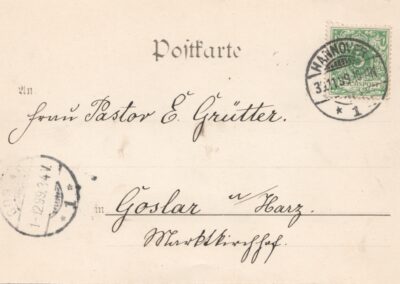 Postkarte
HANNOVER
1
An
Frau Pastor E. Grütter.
1-12 99.3-4V.
1
in Goslar a/Harz.
Marktkirchhof.